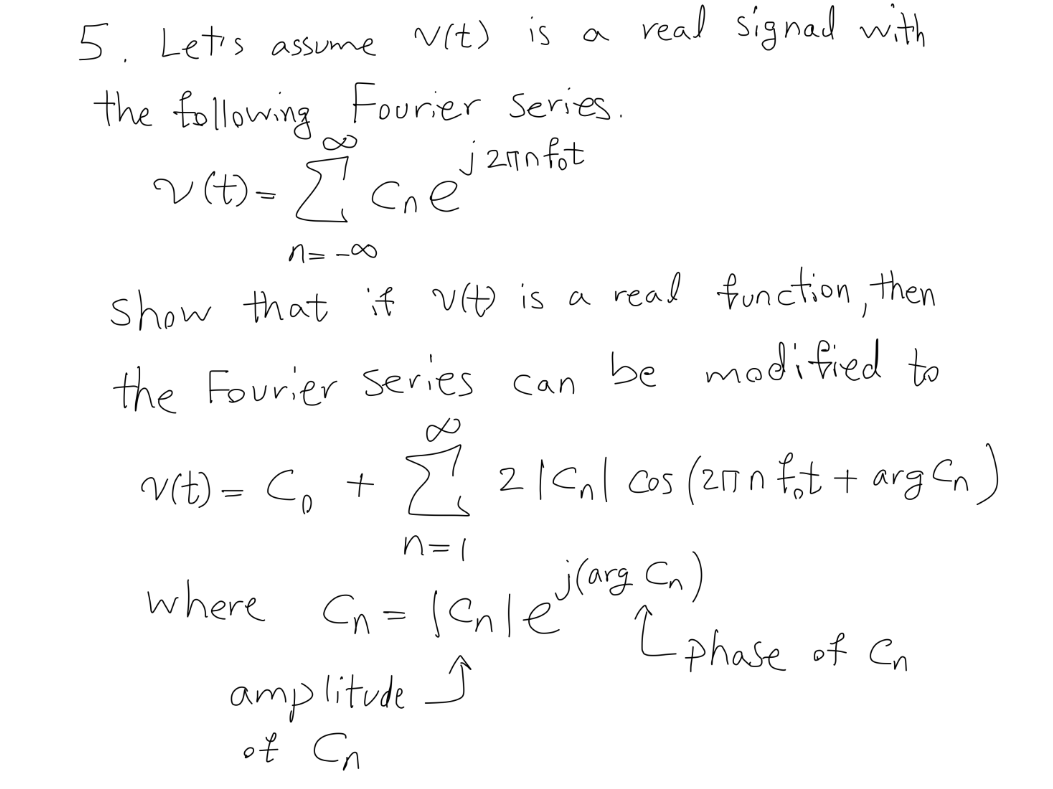 5. Let's assume v(t) is a real signal with
the following Fourier Series.
v(t) = ∞ Σ n=-∞ Cn e^{j2πnf₀t}
show that if v(t) is a real function, then
the Fourier series can be modified to
v(t) = C₀ + ∞ Σ n=1 2|Cn| cos(2πnf₀t + arg Cn)
where Cn = |Cn|e^{j(arg Cn)}
phase of Cn
amplitude
of Cn